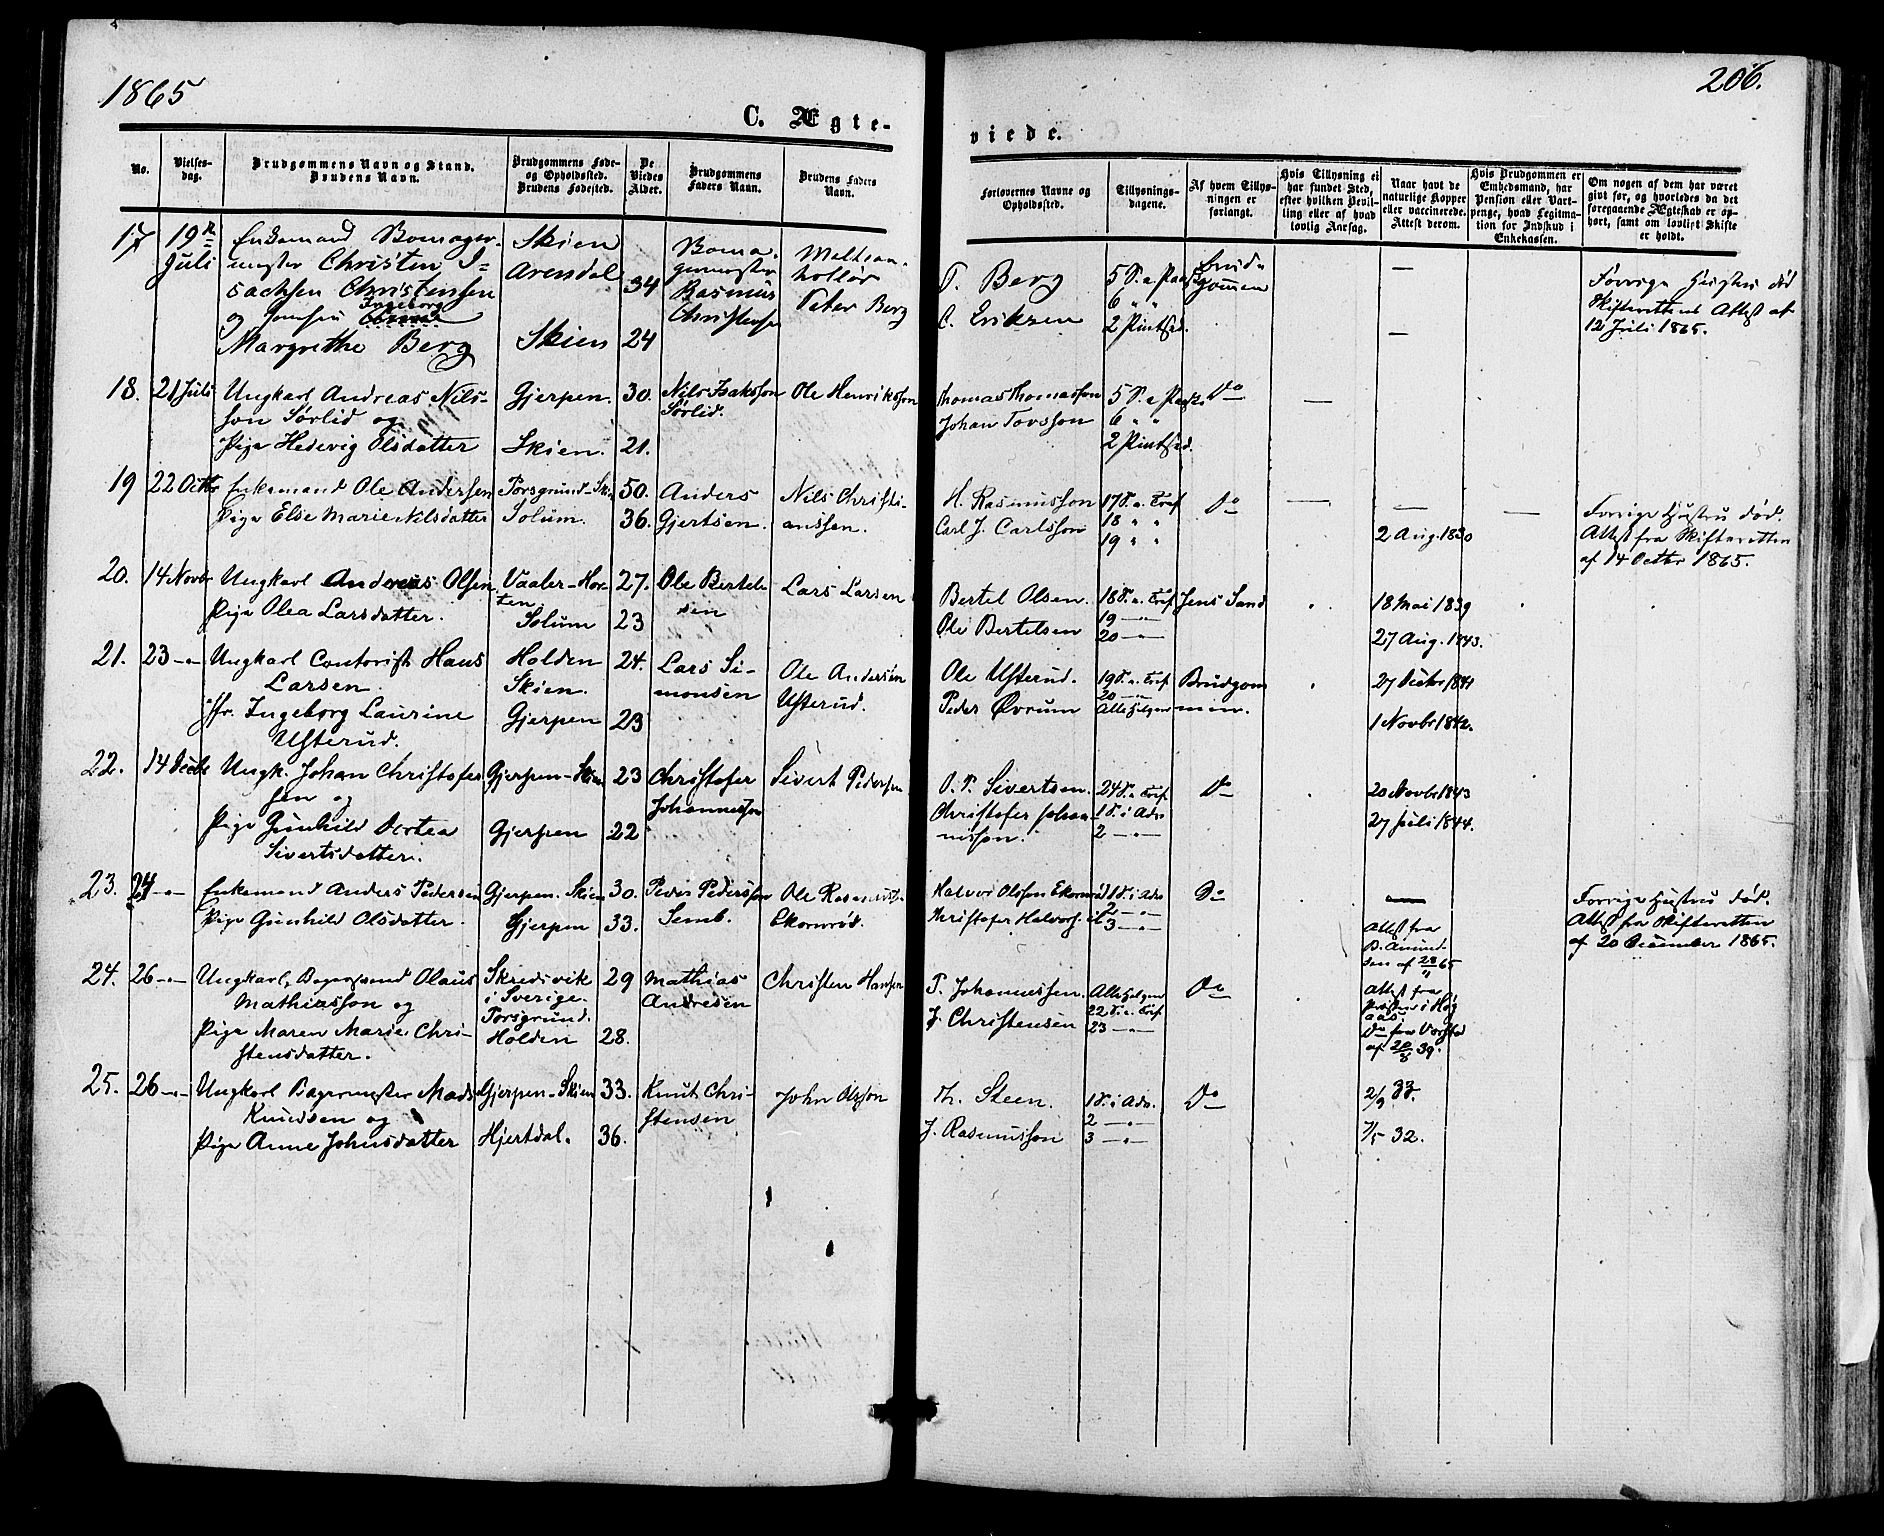 1865
206.
C. Ægte-
viede.
No.
Vielses-
dag.
Brudgommens Navn og Stand.
Brudens Navn.
Brudgommens Føde-
og Opholdssted.
Brudens Fødested.
De
Viedes
Alder.
Brudgommens
Faders Navn.
Brudens Faders
Navn.
Forlovernes Navne og
Opholdssted.
Tillysnings-
dagene.
Af hvem Tillys-
ningen er
forlangt.
Hvis Tillysning ei
har fundet Sted,
efter hvilken Bevil-
ling eller af hvad
lovlig Aarsag.
Naar havt de
naturlige Kopper
eller vaccinerede.
Attest derom.
Hvis Brudgommen er
Embedsmand, har
Pension eller Vart-
penge, hvad Legitima-
tion for Indskud i
Enkekassen.
Om nogen af dem har været
givt før, og hvorledes da det
foregaaende Ægteskab er op-
hørt, samt om lovligt Skifte
er holdt.
17
19
Juli
Enkemand
Christen I-
sachsen Christensen
Ingeborg
Margrethe Berg
Skien
Arendal
Skien
34
24
Rasmus
Christense
Peter Berg
T. Berg
C. Eriksen
5 S. e Paaske
6 " "
2 Pintsed.
Brud-
gommen
—
—
Forrige Hustru død
Skifterettens Attest af
12 Juli 1865.
18.
21 Juli
Ungkarl Andreas Nils-
son Sørlid og
Pige Hedevig Olsdatter
Gjerpen.
Skien.
30.
21.
Nils Isaksson
Sørlid.
Ole Henriksson
Thomas Thomasson
Johan Torsson
5 S. e Paaske
6 " "
2 Pintsed.
Do
—
19
22 Octbr
Enkemand Ole Andersen
Pige Else Marie Nilsdatter
Porsgrund-Skie
Solum.
50.
36.
Anders
Gjertsen.
Nils Christi-
anssen.
H. Rasmusson
Carl J. Carlsson
17 S. e. Tref
18 " "
19 " "
Do
—
—
2 Aug. 1830
—
Forrige Hustru død.
Attest fra Skifteretten
af 14 Octbr 1865.
20.
14 Novbr
Ungkarl Andreas Olsen
Pige Olea Larsdatter.
Vaaler-Hor-
ten
Solum
27.
23
Ole Bertel-
sen
Lars Larsen
Bertel Olsen.
Ole Bertelsen
18 S. e. Tref
19 —"—
20 —"—
Jens Sand
18 Mai 1839
27 Aug. 1843.
21.
23 —"—
Ungkarl Contorist Hans
Larsen.
Jfr. Ingeborg Laurine
Ufterud.
Holden
Skien.
Gjerpen
24.
23
Lars Si-
monsen
Ole Andersen
Ufterud.
Ole Ufterud.
Peder Øvrum
19 S. e. Tref
20 —"—
Alle Helgen
Brudgom
men.
27 Octbr 1841
1 Novbr 1842.
22.
14 Decbr
Ungk. Johan Christofer
sen og
Pige Gunhild Dortea
Sivertsdatter.
Gjerpen-Skien
Gjerpen
23
22
Christofer
Johannesson
Sivert Pedersen
O. P. Sivertsen.
Christofer Johan
nisson.
24 S. e Tref.
1 S. i Adv
2 —"—
Do
20 Novbr 1843
27 Juli 1844.
23.
24 —"—
Enkemand Anders Pedersen
Pige Gunhild Olsdatter.
Gjerpen. Skien
Gjerpen
30.
33.
Peder Pedersson
Semb.
Ole Rasmuss.
Ekornrød.
Halvor Olsson Ekornrød
Kristofer Halvors.
1 S. i Adv
2 —"—
3 —"—
Do
—
Attest fra
B. Amund-
sen af 28/11 65
Forrige Hustru død.
Attest fra Skifteretten
af 20 December 1865.
24.
26 —"—
Ungkarl, Bagersvend Olaus
Mathiasson og
Pige Maren Marie Chri-
stensdatter.
Skredsvik
i Sverige.
Porsgrund.
Holden
29
28.
Mathias
Andresen
Christen Hansen
P. Johannessen.
J. Christensen
Alle Helgen
22 S. e. Tref
23 —"—
Do
Attest fra
Præsten i Hög
aas.
Do fra Vorsted
af 20/8 39.
25.
26 —"—
Ungkarl Bagermester Mads
Knudsen og
Pige Anne Johnsdatter
Gjerpen-Skien
Hjertdal.
33.
36.
Knut Chri-
stensen
John Olsson
Th. Steen.
J. Rasmusson
1 S. i Adv.
2 —"—
3 —"—
Do
2/9 33.
7/5 32.